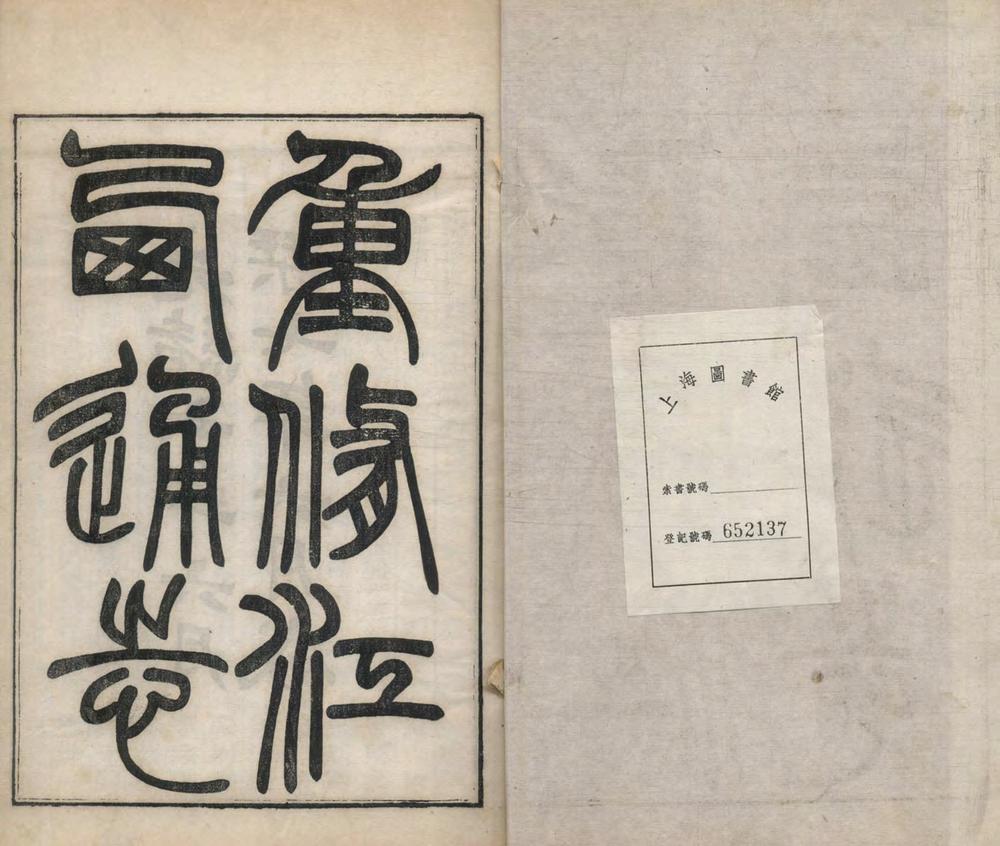 重修江
西通志
上海圖書館
索書號碼
登記號碼 652137